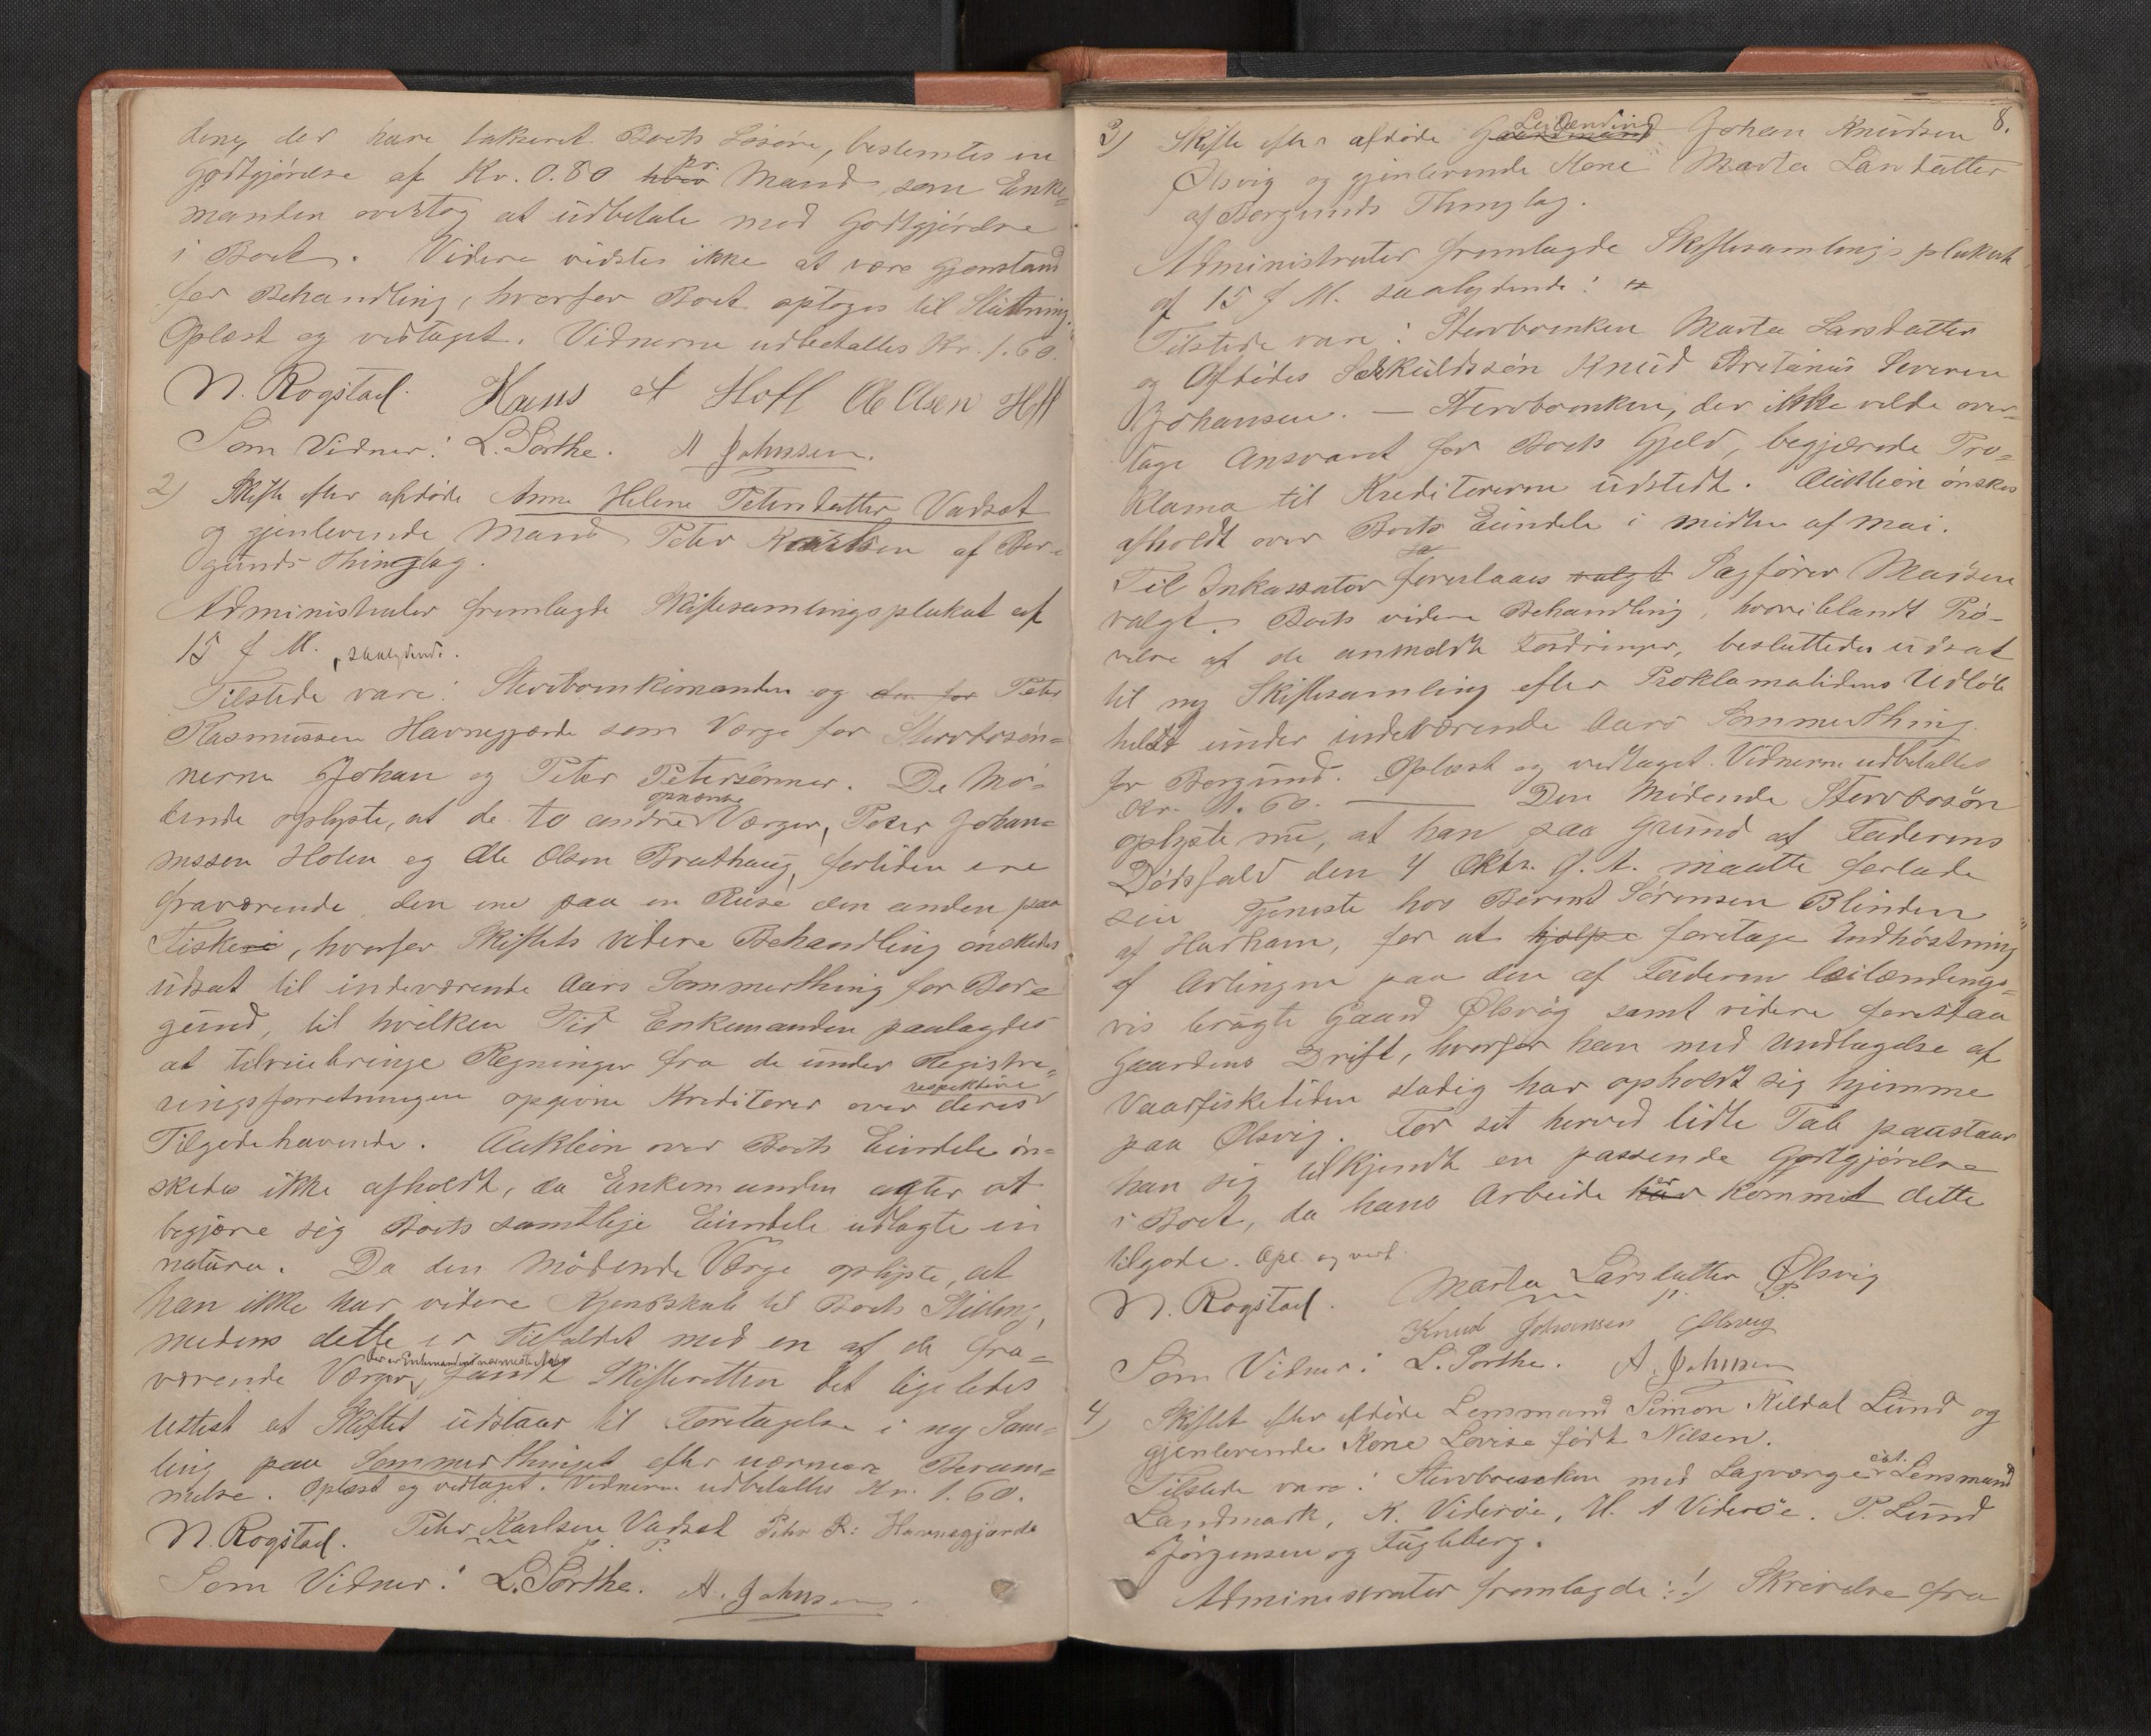 dene, der have takseret Boets Løsøre, bestemtes en
Godtgjørelse af Kr. 0.80 pr. Mand, som Enke-
manden overtog at udbetale mod Godtgjørelse
i Boet. Videre vidstes ikke at være Gjenstand
for Behandling, hvorfor Boet optoges til Slutning.
Oplæst og vedtaget. Vidnerne udbetaltes Kr. 1.60.
N. Rogstad. Hans A Hoff Ole Olsen Hoff
Som Vidner: L. Sorthe. A Johnsen.
2) Skifte efter afdøde Anne Helene Petersdatter Vadset
og gjenlevende Mand Peter Karlsen af Bor-
gunds Thinglag.
Administrator fremlagde Skiftesamlingsplakat af
15 f M. saalydende.
Tilstede vare: Stervboenkemanden og Peter
Rasmussen Havnegjærde som Værge for Stervbosøn-
nerne Johan og Peter Petersønner. De Mø-
dende oplyste, at de to andre opnævnte Værger, Peter Johan-
nssen Holen og Ole Olsen Brathaug, fortiden ere
fraværende, den ene paa en Reise den anden paa
Fiskeri, hvorfor Skiftets videre Behandling ønskedes
udsat til indeværende Aars Sommerthing for Bor-
gund, til hvilken Tid Enkemanden paalagdes
at tilveiebringe Regninger fra de under Registre-
ringsforretningen opgivne Kreditorer over deres respektive
Tilgodehavende. Auktion over Boets Eiendele øn-
skedes ikke afholdt, da Enkemanden agter at
begjære sig Boets samtlige Eiendele udlagte in
natura. Da den Mødende Værge oplyste, at
han ikke har videre Kjendskab til Boets Stilling,
medens dette er Tilfældet med en af de fra-
værende Værger, der er Enkemandens nærmeste Nabo, fandt Skifteretten det ligeledes
rettest at Skiftet udstaar til Foretagelse i ny Sam-
ling paa Sommerthinget efter nærmere Beram-
melse. Oplæst og vedtaget. Vidnerne udbetaltes Kr. 1.60.
N. Rogstad. Peter Karlsen Vadset Peter R: Havnegjærde
m. p. P.
Som Vidner: L. Sorthe. A. Johnsen.
8.
3) Skifte efter afdøde Leilænding Johan Knudsen
Ølsvig og gjenlevende Kone Marta Larsdatter
af Borgunds Thinglag.
Administrator fremlagde Skiftesamlingsplakat
af 15 f M. saalydende:
Tilstede vare: Stervboenken Marta Larsdatter
og Afdødes Særkuldssøn Knud Severin
Johansen. — Stervboenken, der ikke vilde over-
tage Ansvaret for Boets Gjeld, begjærede Pro-
klama til Kreditorerne udstedt. Auktion ønskes
afholdt over Boets Eiendele i midten af Mai.
Til Inkassator foreslaaes valgt Sagfører Madsen
valgt. Boets videre Behandling, hvoriblandt Prø-
velse af de anmeldte Fordringer, besluttedes udsat
til ny Skiftesamling efter Proklamatidens Udløb
holdt under indeværende Aars Sommerthing
for Borgund. Oplæst og vedtaget. Vidnerne udbetaltes
Kr. 1.60. — Den Mødende Stervbosøn
oplyste nu, at han paa Grund af Faderens
Dødsfald den 4 Oktr. f. A. maatte forlade
sin Tjeneste hos Berent Sørensen Blinden
af Harham, for at hjælpe foretage Indhøstning
af Avlingen paa den af Faderen leilændings-
vis brugte Gaard Ølsvig samt videre forestaa
Gaardens Drift, hvorfor han med Undtagelse af
Vaarfisketiden stadig har opholdt sig hjemme
paa Ølsvig. For sit herved lidte Tab paastaar
han sig tilkjendt en passende Godtgjørelse
i Boet, da hans Arbeide er kommet dette
tilgode. Opl. og vedt.
N. Rogstad. Marta Larsdatter Ølsvig
m. p. P.
Knud Johansen Ølsvig
Som Vidner: L. Sorthe. A. Johnsen
4) Skiftet efter afdøde Lensmand Simon Kildal Lund og
gjenlevende Kone Lovise født Nilsen.
Tilstede vare: Stervboenken med Lagværge cst. Lensmand
Landmark, K. Viderøe, H. A Viderøe. P. Lund
Jørgensen og Fugleberg.
Administrator fremlagde: 1) Skrivelse fra